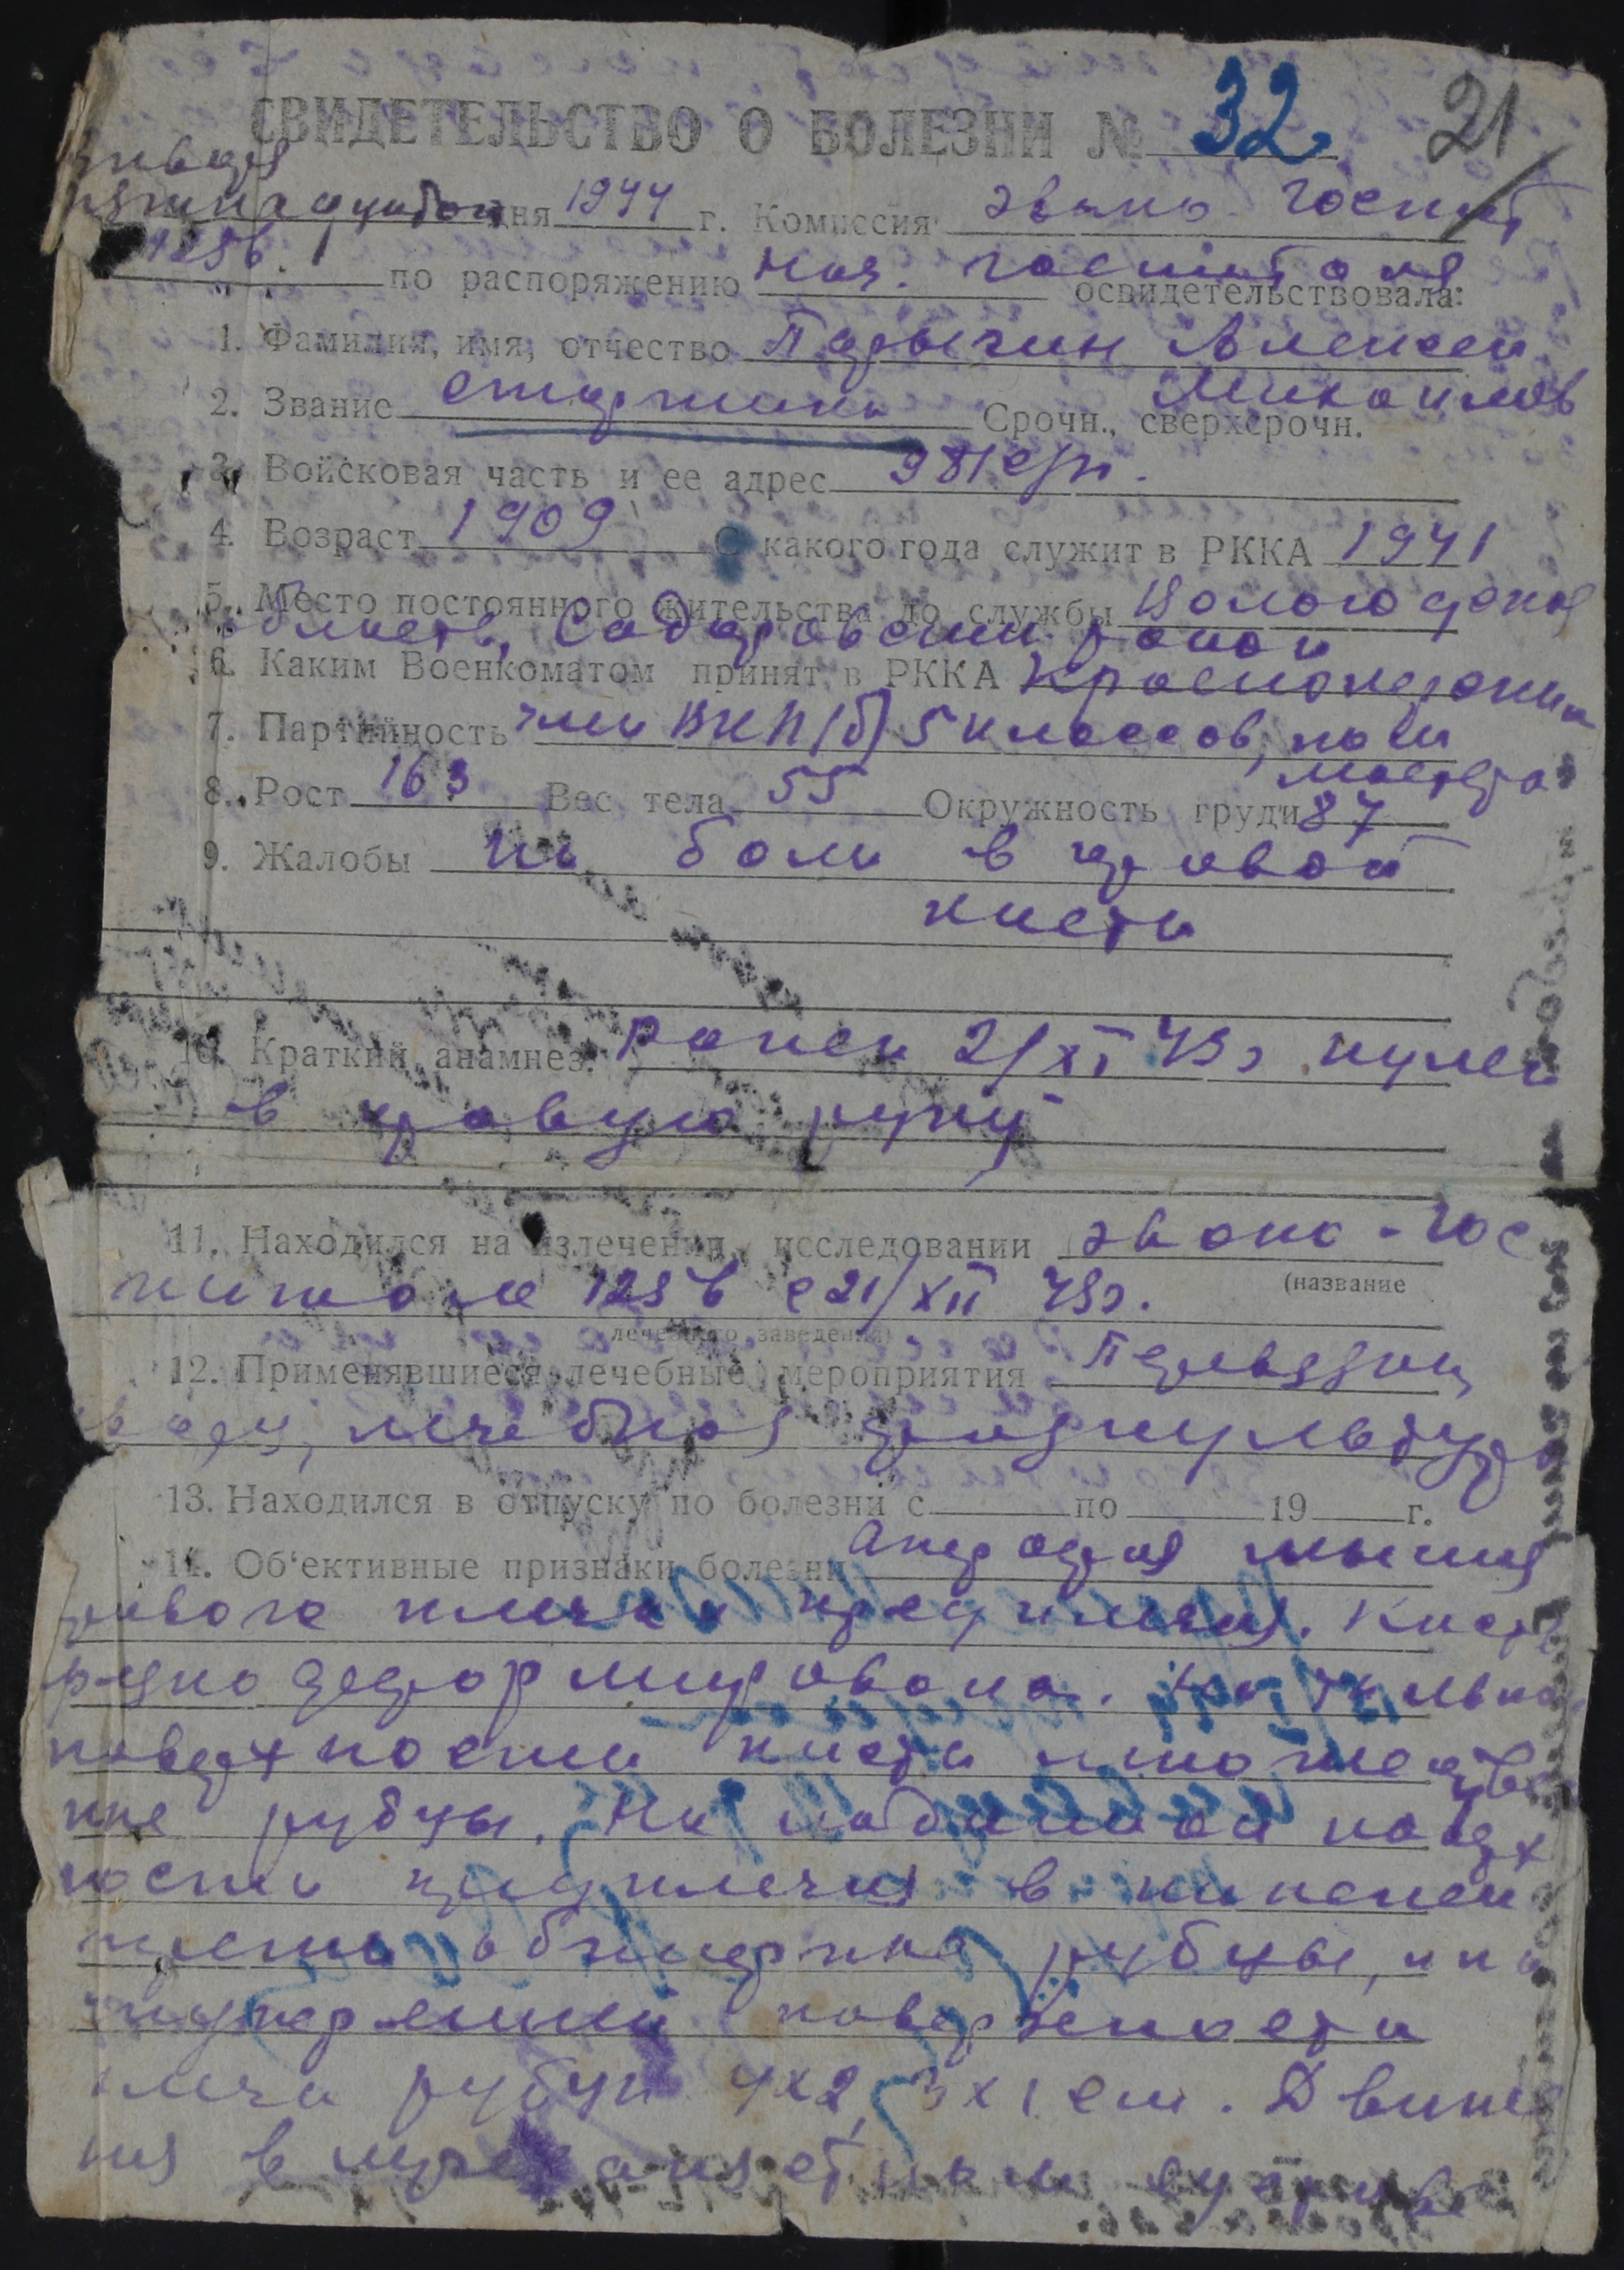 СВИДЕТЕЛЬСТВО О БОЛЕЗНИ № 32 21
января
дня 1944 г. Комиссия эвако. Госпит
1256 по распоряжению Нач. госпиталя освидетельствовала:
1. Фамилия, имя, отчество Алексей
Михайлов
2. Звание старшина Срочн., сверхсрочн.
3. Войсковая часть и ее адрес 981 сп.
4. Возраст 1909 С какого года служит в РККА 1941
5. Место постоянного жительства до службы Вологодская
область, район
6. Каким Военкоматом принят в РККА
7. Партийность член ВКП(б) 5 классов,
8. Рост 163 Вес тела 55 Окружность груди 87
9. Жалобы на боли в правой
кисти
10. Краткий анамнез. Ранен 21/XI 43г пулей
в правую руку
11. Находился на излечении, исследовании эвако-гос
(название
питале 1256 с 21/XII 43г.
лечебного заведения)
12. Применявшиеся лечебные мероприятия Перевязки,
лечебная физкультура
13. Находился в отпуску по болезни с по 19 г.
14. Об‘ективные признаки болезни Атрофия мышц
правого плеча и предплечья. Кисть
резко деформирована. На тыльной
поверхности кисти множествен
ные рубцы. На ладонной поверх
ности предплечья в нижней
трети обширные рубцы, на
внутренней поверхности
плеча рубцы 4х2, 3х1 см. Движе
ния в суставе